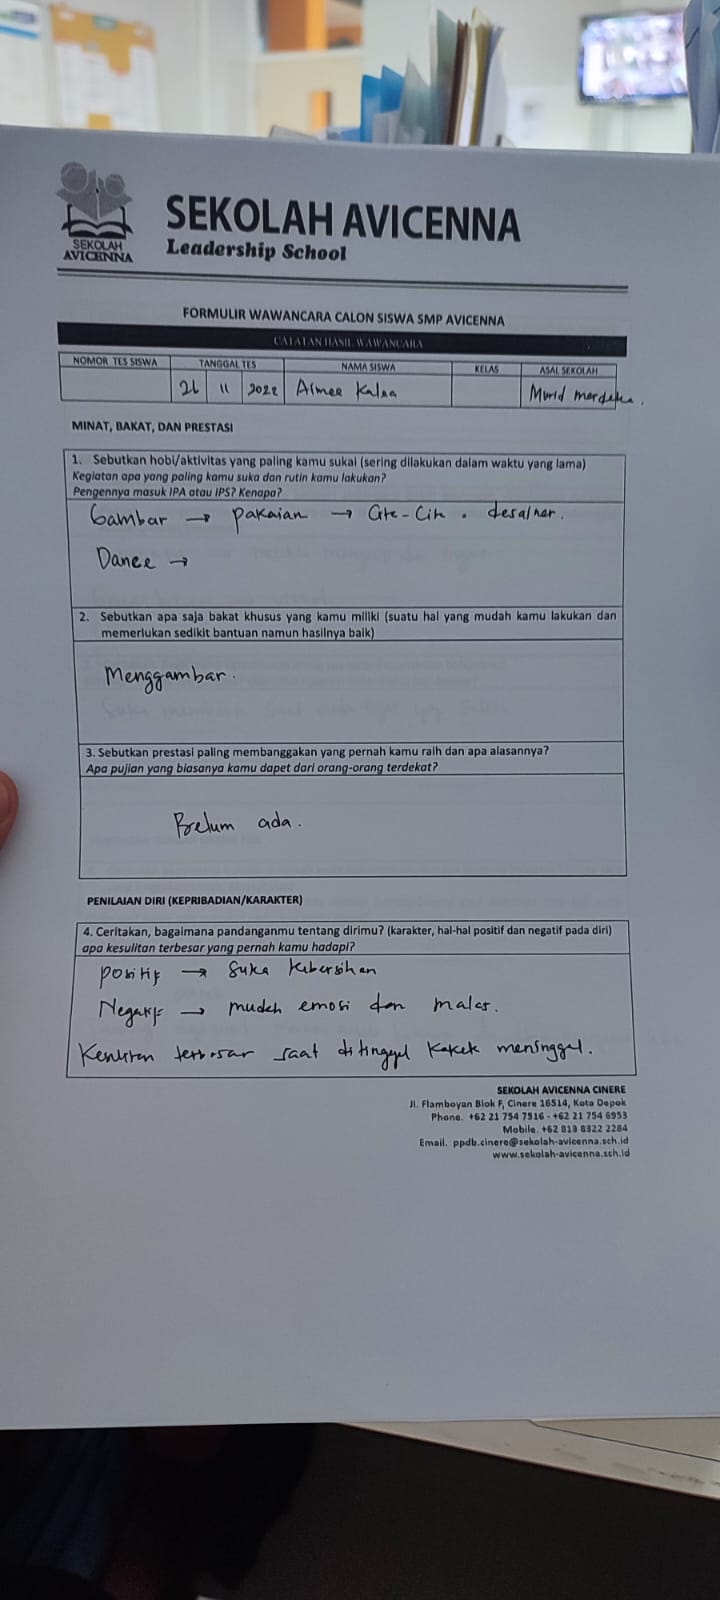 SEKOLAH AVICENNA
Leadership School
SEKOLAH
AVICENNA
FORMULIR WAWANCARA CALON SISWA SMP AVICENNA
CATATAN HASIL WAWANCARA
NOMOR TES SISWA TANGGAL TES NAMA SISWA KELAS ASAL SEKOLAH
26 11 2022 Aimee Kalea Murid merdeka.
MINAT, BAKAT, DAN PRESTASI
1. Sebutkan hobi/aktivitas yang paling kamu sukai (sering dilakukan dalam waktu yang lama)
Kegiatan apa yang paling kamu suka dan rutin kamu lakukan?
Pengennya masuk IPA atau IPS? Kenapa?
Gambar → pakaian → Cita-Cita . desainer.
Dance →
2. Sebutkan apa saja bakat khusus yang kamu miliki (suatu hal yang mudah kamu lakukan dan
memerlukan sedikit bantuan namun hasilnya baik)
Menggambar.
3. Sebutkan prestasi paling membanggakan yang pernah kamu raih dan apa alasannya?
Apa pujian yang biasanya kamu dapet dari orang-orang terdekat?
Belum ada.
PENILAIAN DIRI (KEPRIBADIAN/KARAKTER)
4. Ceritakan, bagaimana pandanganmu tentang dirimu? (karakter, hal-hal positif dan negatif pada diri)
apa kesulitan terbesar yang pernah kamu hadapi?
positif → suka kebersihan
Negatif → mudah emosi dan malas.
terbesar saat ditinggal kakek meninggal.
SEKOLAH AVICENNA CINERE
Jl. Flamboyan Blok F, Cinere 16514, Kota Depok
Phone. +62 21 754 7516 - +62 21 754 6953
Mobile. +62 813 8322 2284
Email. ppdb.cinere@sekolah-avicenna.sch.id
www.sekolah-avicenna.sch.id